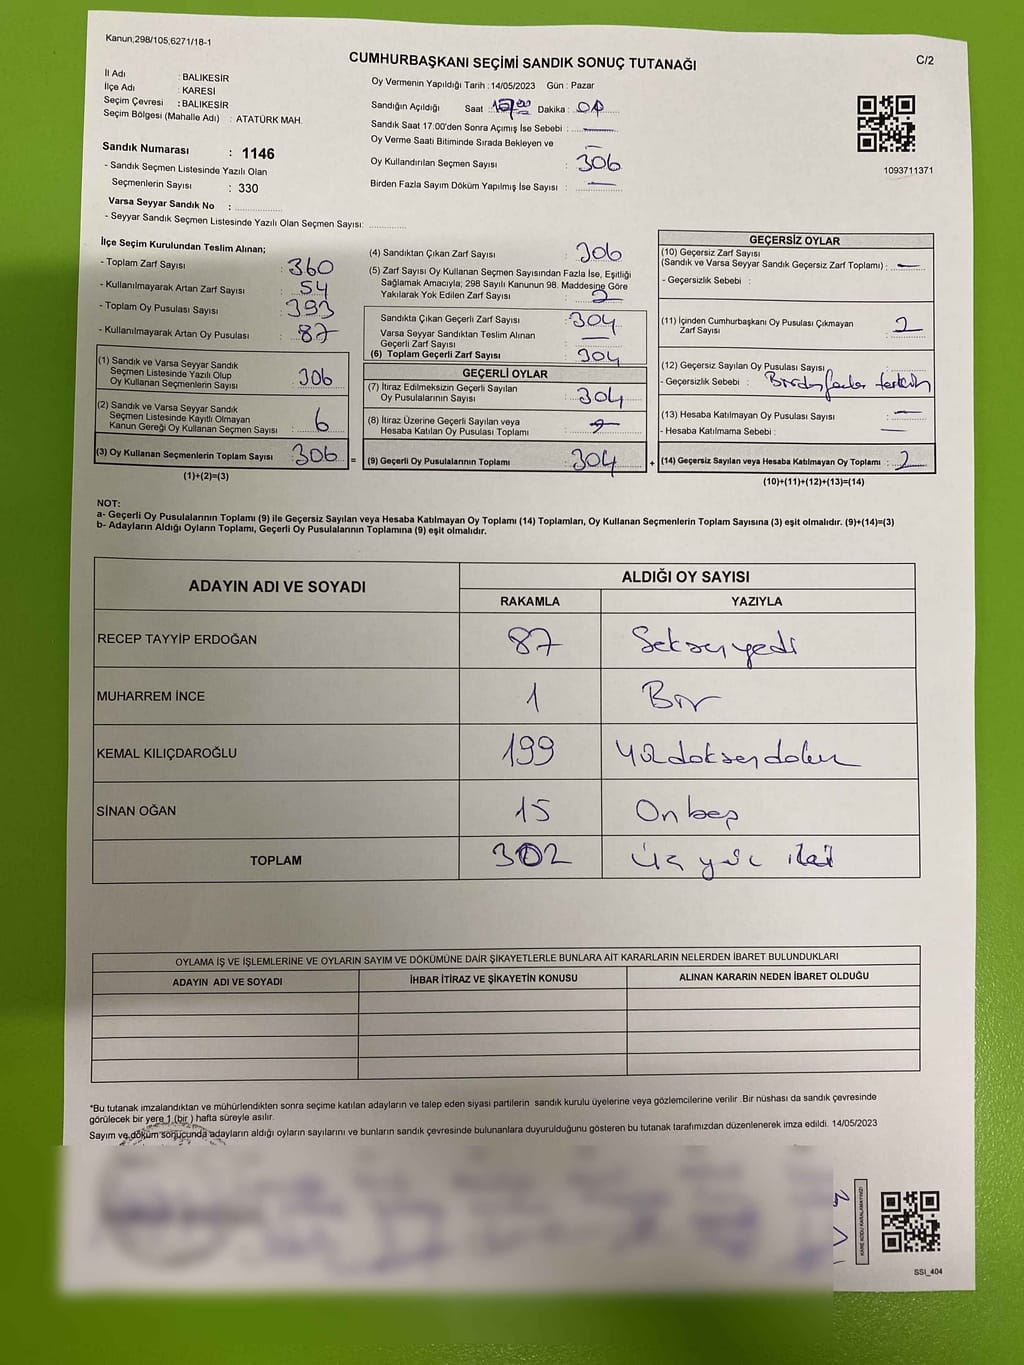 Kanun;298/105,6271/18-1
C/2
CUMHURBAŞKANI SEÇİMİ SANDIK SONUÇ TUTANAĞI
İl Adı : BALIKESİR
İlçe Adı : KARESİ
Seçim Çevresi : BALIKESİR
Seçim Bölgesi (Mahalle Adı) : ATATÜRK MAH.
Sandık Numarası : 1146
- Sandık Seçmen Listesinde Yazılı Olan
Seçmenlerin Sayısı : 330
Varsa Seyyar Sandık No :
- Seyyar Sandık Seçmen Listesinde Yazılı Olan Seçmen Sayısı:
Oy Vermenin Yapıldığı Tarih : 14/05/2023 Gün : Pazar
Sandığın Açıldığı Saat : Dakika :
Sandık Saat 17:00'den Sonra Açımış İse Sebebi : —
Oy Verme Saati Bitiminde Sırada Bekleyen ve —
Oy Kullandırılan Seçmen Sayısı : 306
Birden Fazla Sayım Döküm Yapılmış İse Sayısı : —
1093711371
İlçe Seçim Kurulundan Teslim Alınan;
- Toplam Zarf Sayısı : 360
- Kullanılmayarak Artan Zarf Sayısı : 54
- Toplam Oy Pusulası Sayısı : 393
- Kullanılmayarak Artan Oy Pusulası : 87
(1) Sandık ve Varsa Seyyar Sandık
Seçmen Listesinde Yazılı Olup
Oy Kullanan Seçmenlerin Sayısı : 306
(2) Sandık ve Varsa Seyyar Sandık
Seçmen Listesinde Kayıtlı Olmayan
Kanun Gereği Oy Kullanan Seçmen Sayısı : 6
(3) Oy Kullanan Seçmenlerin Toplam Sayısı : 306
(1)+(2)=(3)
(4) Sandıktan Çıkan Zarf Sayısı : 306
(5) Zarf Sayısı Oy Kullanan Seçmen Sayısından Fazla İse, Eşitliği
Sağlamak Amacıyla; 298 Sayılı Kanunun 98. Maddesine Göre
Yakılarak Yok Edilen Zarf Sayısı : 2
Sandıkta Çıkan Geçerli Zarf Sayısı : 304
Varsa Seyyar Sandıktan Teslim Alınan
Geçerli Zarf Sayısı : —
(6) Toplam Geçerli Zarf Sayısı : 304
GEÇERLİ OYLAR
(7) İtiraz Edilmeksizin Geçerli Sayılan
Oy Pusulalarının Sayısı : 304
(8) İtiraz Üzerine Geçerli Sayılan veya
Hesaba Katılan Oy Pusulası Toplamı :
= (9) Geçerli Oy Pusulalarının Toplamı : 304
GEÇERSİZ OYLAR
(10) Geçersiz Zarf Sayısı
(Sandık ve Varsa Seyyar Sandık Geçersiz Zarf Toplamı) : —
- Geçersizlik Sebebi :
(11) İçinden Cumhurbaşkanı Oy Pusulası Çıkmayan
Zarf Sayısı : 2
(12) Geçersiz Sayılan Oy Pusulası Sayısı :
- Geçersizlik Sebebi : Birden fazla tercih
(13) Hesaba Katılmayan Oy Pusulası Sayısı : —
- Hesaba Katılmama Sebebi : —
+ (14) Geçersiz Sayılan veya Hesaba Katılmayan Oy Toplamı : 2
(10)+(11)+(12)+(13)=(14)
NOT:
a- Geçerli Oy Pusulalarının Toplamı (9) ile Geçersiz Sayılan veya Hesaba Katılmayan Oy Toplamı (14) Toplamları, Oy Kullanan Seçmenlerin Toplam Sayısına (3) eşit olmalıdır. (9)+(14)=(3)
b- Adayların Aldığı Oyların Toplamı, Geçerli Oy Pusulalarının Toplamına (9) eşit olmalıdır.
ADAYIN ADI VE SOYADI
ALDIĞI OY SAYISI
RAKAMLA YAZIYLA
RECEP TAYYİP ERDOĞAN 87 Seksen yedi
MUHARREM İNCE 1 Bir
KEMAL KILIÇDAROĞLU 199 Yüzdoksendokuz
SİNAN OĞAN 15 Onbeş
TOPLAM 302 Üç yüz iki
OYLAMA İŞ VE İŞLEMLERİNE VE OYLARIN SAYIM VE DÖKÜMÜNE DAİR ŞİKAYETLERLE BUNLARA AİT KARARLARIN NELERDEN İBARET BULUNDUKLARI
ADAYIN ADI VE SOYADI İHBAR İTİRAZ VE ŞİKAYETİN KONUSU ALINAN KARARIN NEDEN İBARET OLDUĞU
*Bu tutanak imzalandıktan ve mühürlendikten sonra seçime katılan adayların ve talep eden siyasi partilerin sandık kurulu üyelerine veya gözlemcilerine verilir .Bir nüshası da sandık çevresinde
görülecek bir yere 1 (bir ) hafta süreyle asılır.
Sayım ve döküm sonucunda adayların aldığı oyların sayılarını ve bunların sandık çevresinde bulunanlara duyurulduğunu gösteren bu tutanak tarafımızdan düzenlenerek imza edildi. 14/05/2023
KARE KODU KARALAMAYINIZ!
SSI_404